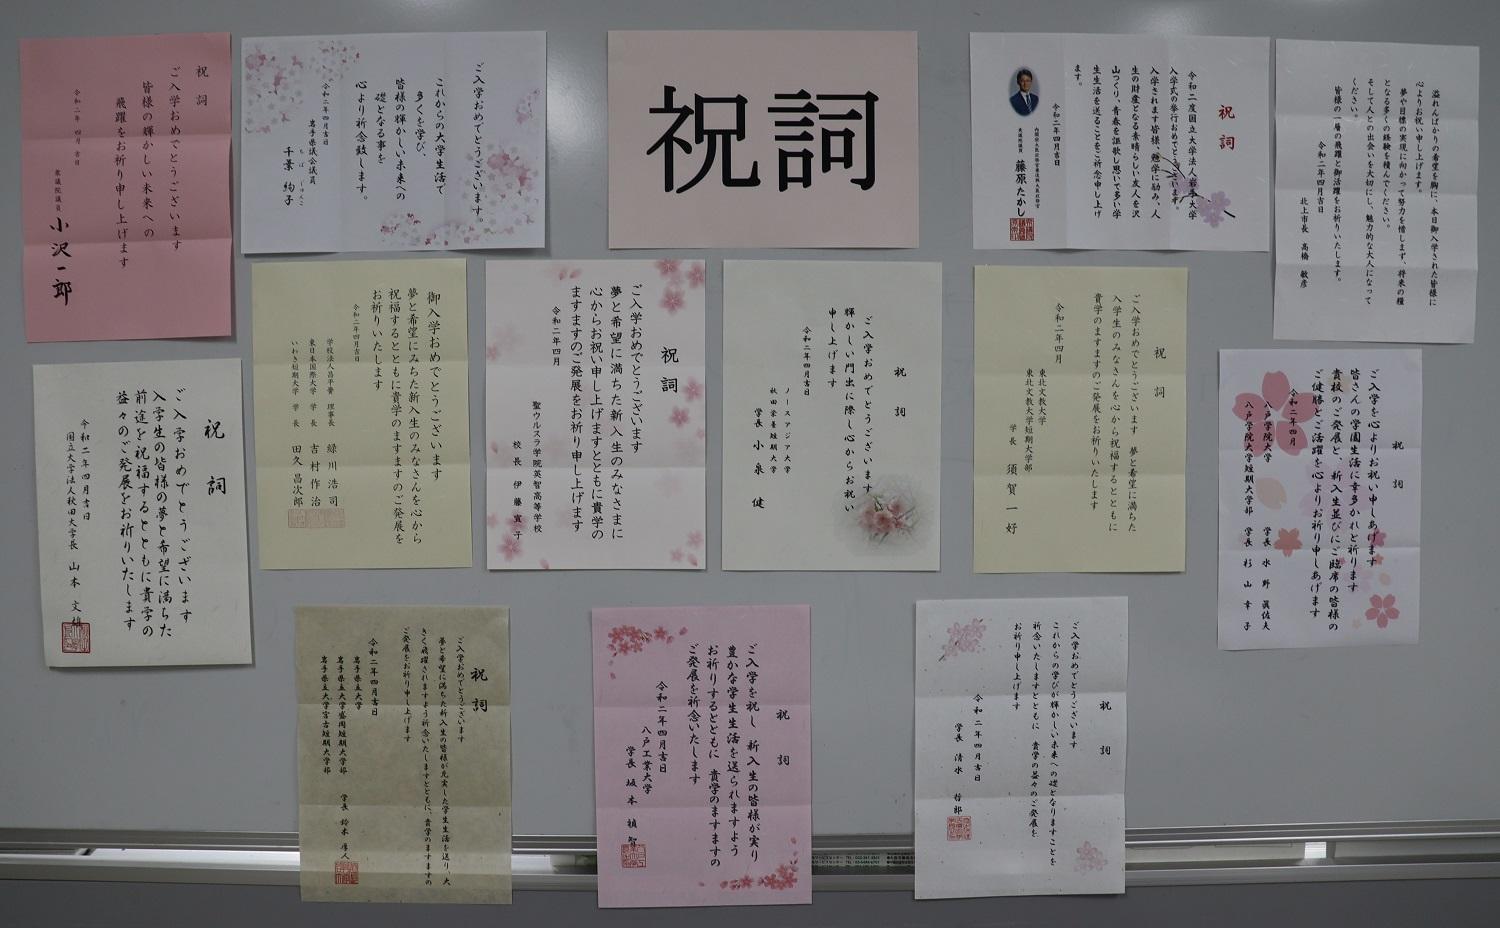 祝詞
祝 詞
ご入学おめでとうございます
皆様の輝かしい未来への
飛躍をお祈り申し上げます
令和二年 四月 吉日
衆議院議員
小沢一郎
ご入学おめでとうございます。
これからの大学生活で
多くを学び、
皆様の輝かしい未来への
礎となる事を
心より祈念致します。
令和二年四月吉日
岩手県議会議員
ちば じゅんこ
千葉 絢子
祝詞
令和二度国立大学法人岩手大学
入学式の挙行おめでとうございます。
入学されます皆様、勉学に励み、人
生の財産となる素晴らしい友人を沢
山つくり、青春を謳歌し思いて多い学
生生活を送ることをご祈念申し上げ
ます。
令和二年四月吉日
衆議院議員 藤原たかし
溢れんばかりの希望を胸に、本日御入学された皆様に
心よりお祝い申し上げます。
夢や目標の実現に向かって努力を惜しまず、将来の糧
となる多くの経験を積んでください。
そして人との出会いを大切にし、魅力的な大人になって
ください。
皆様の一層の飛躍と御活躍をお祈りいたします。
令和二年四月吉日
北上市長 高橋 敏彦
祝 詞
ご入学おめでとうございます
入学生の皆様の夢と希望に満ちた
前途を祝福するとともに貴学の
益々のご発展をお祈りいたします
令和二年四月吉日
国立大学法人秋田大学長 山本 文雄
御入学おめでとうございます
夢と希望にみちた新入生のみなさんを心から
祝福するとともに貴学のますますのご発展を
お祈りいたします
令和二年四月吉日
学校法人昌平黌 理事長 緑川 浩司
東日本国際大学 学長 吉村 作治
いわき短期大学 学長 田久 昌次郎
祝詞
ご入学おめでとうございます
夢と希望に満ちた新入生のみなさまに
心からお祝い申し上げますとともに貴学の
ますますのご発展をお祈り申し上げます
令和二年四月
聖ウルスラ学院英智高等学校
校長 伊藤 宣子
祝 詞
ご入学おめでとうございます
輝かしい門出に際し心からお祝い
申し上げます
令和二年四月吉日
ノースアジア大学
秋田栄養短期大学
学長 小泉 健
祝 詞
ご入学おめでとうございます 夢と希望に満ちた
入学生のみなさんを心から祝福するとともに
貴学のますますのご発展をお祈りいたします
令和二年四月
東北文教大学
東北文教大学短期大学部
学長 須賀 一好
祝 詞
ご入学を心よりお祝い申しあげます
皆さんの学園生活に幸多かれと祈ります
貴校のご発展と、新入生並びにご臨席の皆様の
ご健勝とご活躍を心よりお祈り申しあげます
令和二年四月
八戸学院大学 学長 水野 眞佐夫
八戸学院大学短期大学部 学長 杉山 幸子
祝 詞
ご入学おめでとうございます
夢と希望に満ちた新入生の皆様が充実した学生生活を送り、大
きく飛躍されますよう祈念いたしますとともに、貴学のますますの
ご発展をお祈り申し上げます
令和二年四月吉日
岩手県立大学
岩手県立大学盛岡短期大学部
岩手県立大学宮古短期大学部
学長 鈴木 厚人
祝 詞
ご入学を祝し 新入生の皆様が実り
豊かな学生生活を送られますよう
お祈りするとともに 貴学のますますの
ご発展を祈念いたします
令和二年四月吉日
八戸工業大学
学長 坂本 禎智
祝 詞
ご入学おめでとうございます
これからの学びが輝かしい未来への礎となりますことを
祈念いたしますとともに 貴学の益々のご発展を
お祈り申し上げます
令和二年四月吉日
学長 清水 哲郎